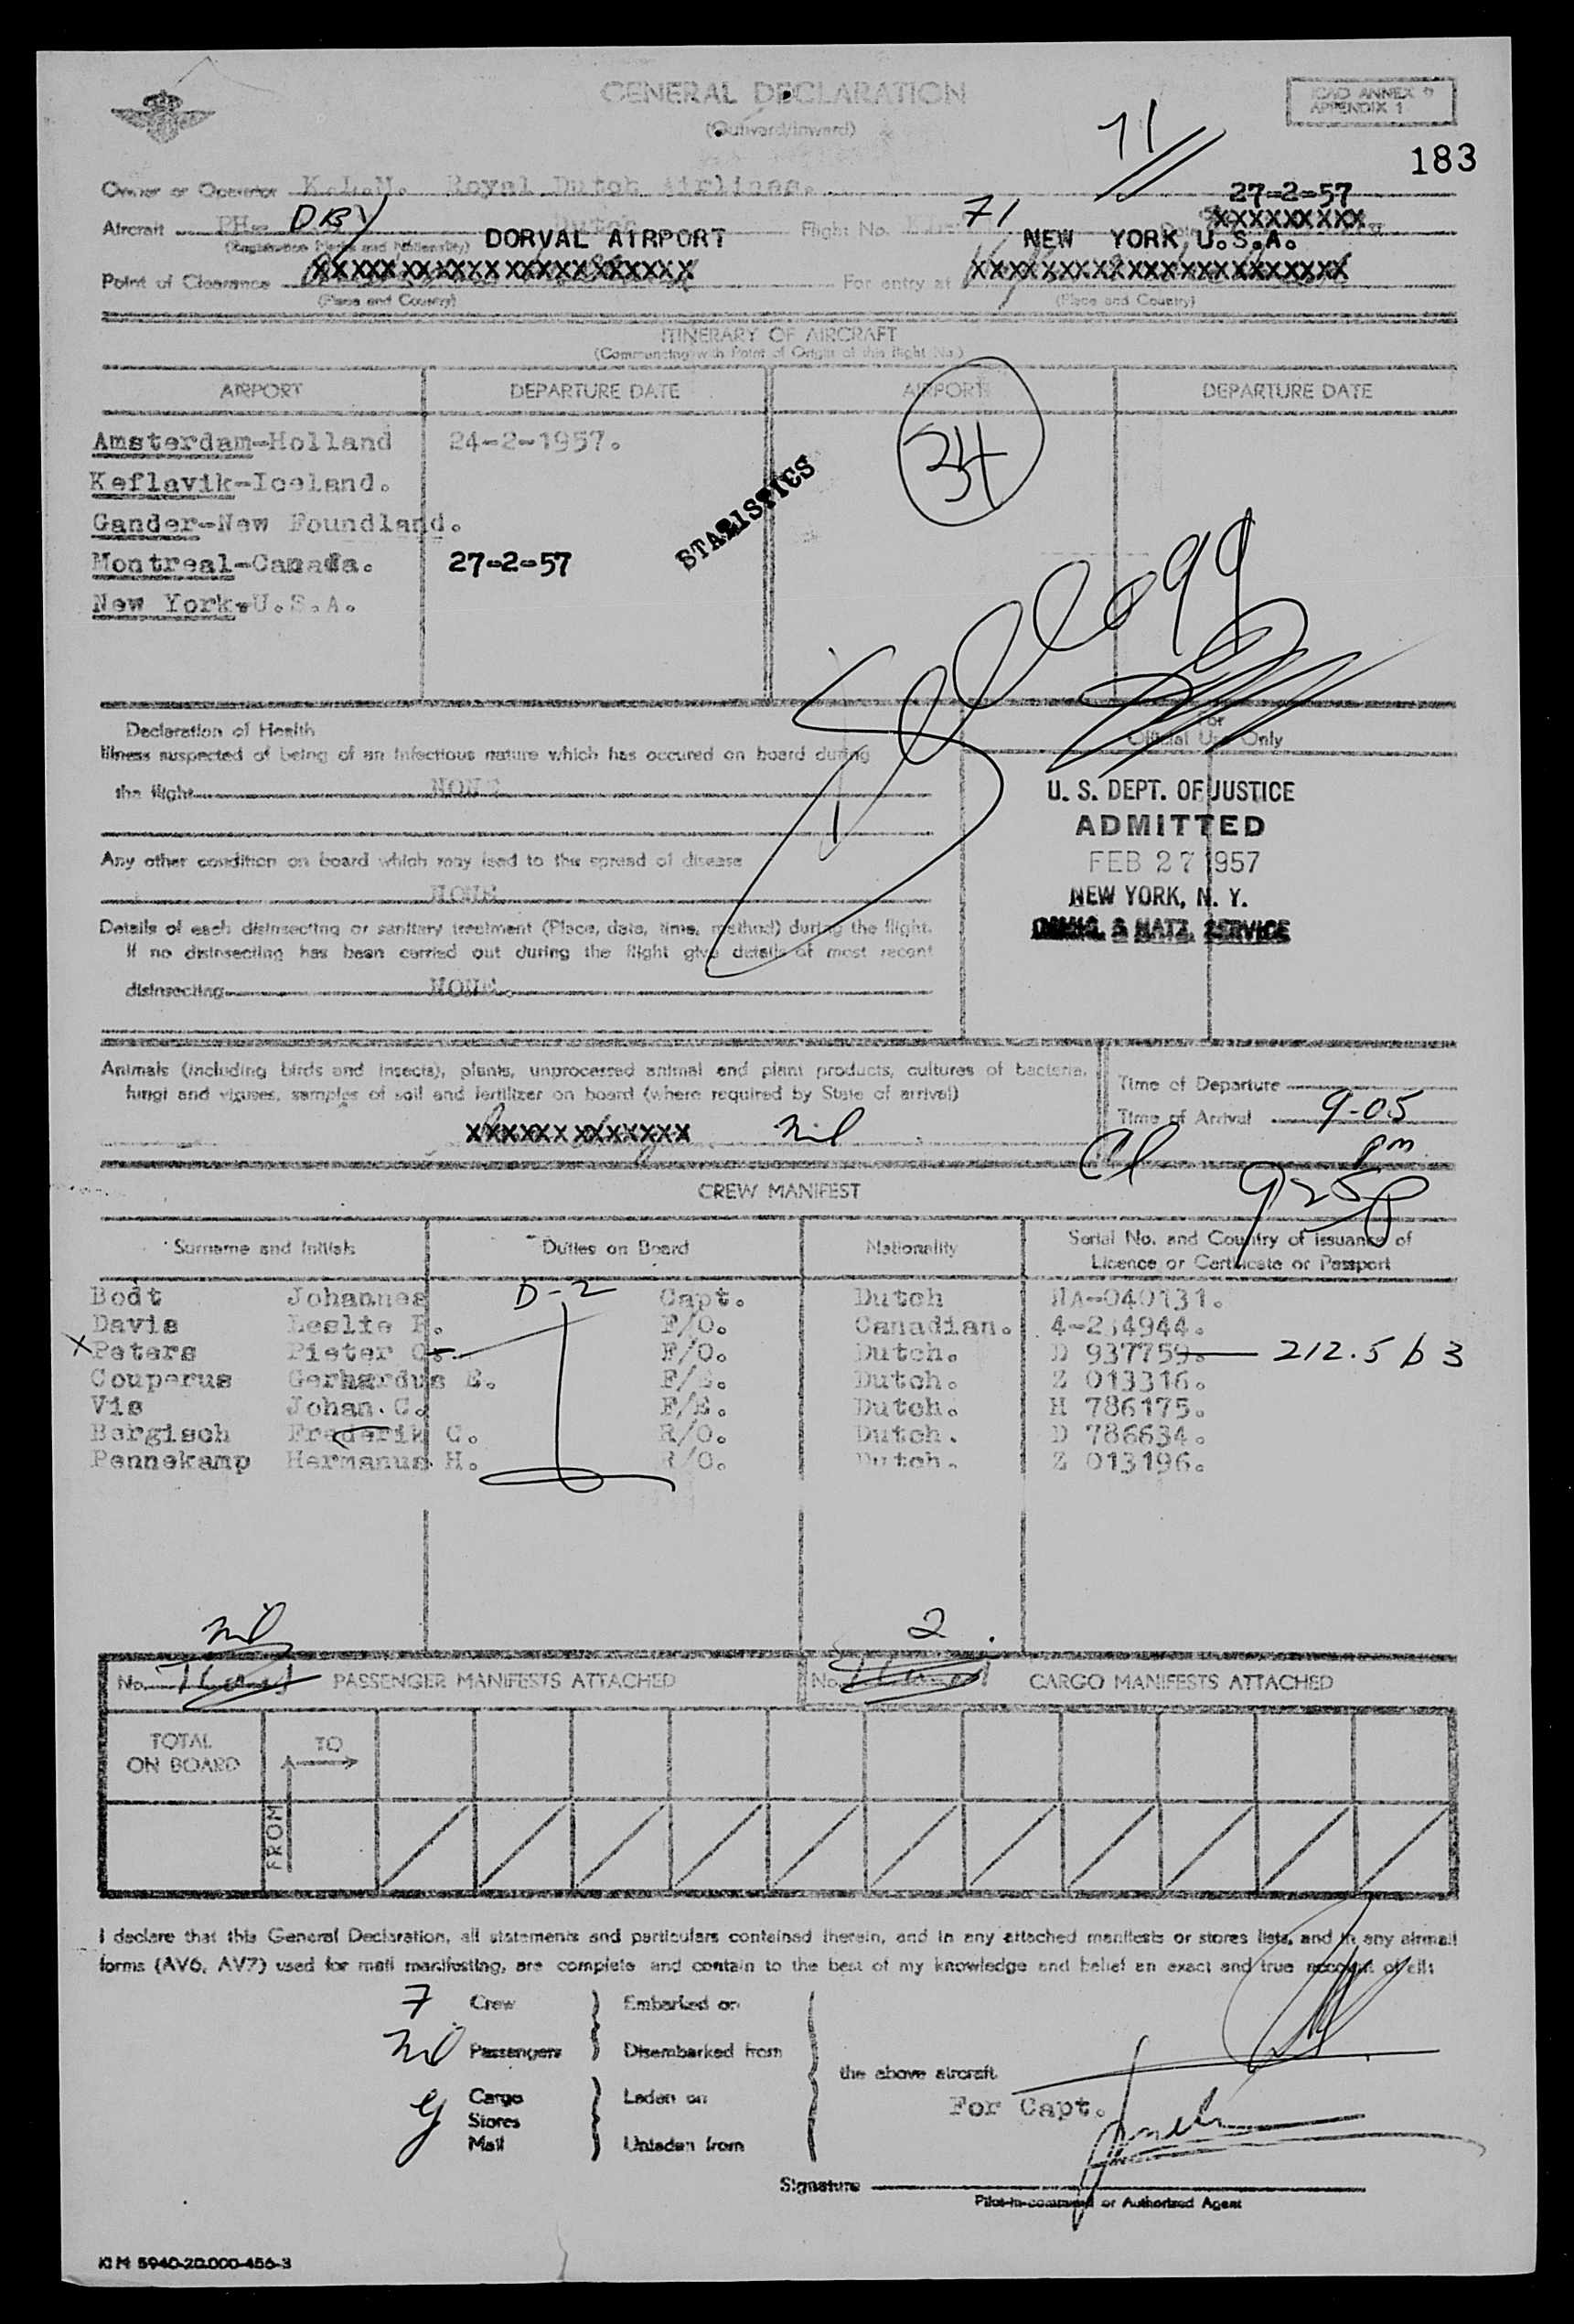 GENERAL DECLARATION
(Outward/Inward)
ICAO ANNEX 9
APPENDIX 1
71
183
Owner or Operator K.L.M. Royal Dutch Airlines.
27-2-57
Aircraft PH- DBY Dutch Flight No. 71 XXXXXXXXX
(Registration Marks and Nationality) DORVAL AIRPORT NEW YORK, U.S.A.
Point of Clearance XXXXXXXXXXXXXXXXXXXXXX For entry at XXXXXXXXXXXXXXXXXXXXXX
(Place and Country) (Place and Country)
ITINERARY OF AIRCRAFT
(Commencing with Point of Origin of this flight No.)
AIRPORT DEPARTURE DATE AIRPORT DEPARTURE DATE
34
Amsterdam-Holland 24-2-1957.
Keflavik-Iceland.
Gander-New Foundland.
STATISTICS
Montreal-Canada. 27-2-57
New York-U.S.A.
Declaration of Health
For
Official Use Only
Illness suspected of being of an infectious nature which has occured on board during
the flight NONE
U. S. DEPT. OF JUSTICE
ADMITTED
FEB 27 1957
NEW YORK, N. Y.
IMMIG. & NATZ. SERVICE
Any other condition on board which may lead to the spread of disease
NONE
Details of each disinsecting or sanitary treatment (Place, date, time, method) during the flight.
If no disinsecting has been carried out during the flight give details of most recent
disinsecting NONE.
Animals (including birds and insects), plants, unprocessed animal and plant products, cultures of bacteria,
fungi and viruses, samples of soil and fertilizer on board (where required by State of arrival)
XXXXXXXXXXXXX nil
Time of Departure
Time of Arrival 9-05
pm
925p
CREW MANIFEST
Surname and Initials Duties on Board Nationality Serial No. and Country of issuance of
Licence or Certificate or Passport
Bodt Johannes D-2 Capt. Dutch NA-040131.
Davis Leslie F. F/O. Canadian. 4-234944.
X Peters Pieter G. F/O. Dutch. D 937759. 212.5 b 3
Couperus Gerhardus E. F/E. Dutch. Z 013316.
Vis Johan.C. F/E. Dutch. H 786175.
Bargisch Frederik C. R/O. Dutch. D 786634.
Pennekamp Hermanus H. R/O. Dutch. Z 013196.
nil 2
No. PASSENGER MANIFESTS ATTACHED No. CARGO MANIFESTS ATTACHED
TOTAL
ON BOARD
TO
FROM
I declare that this General Declaration, all statements and particulars contained therein, and in any attached manifests or stores lists, and in any airmail
forms (AV6, AV7) used for mail manifesting, are complete and contain to the best of my knowledge and belief an exact and true account of all:
7 Crew Embarked on
nil Passengers Disembarked from
the above aircraft.
Cargo Laden on
Stores
Mail Unladen from
For Capt.
Signature
Pilot-in-command or Authorized Agent
KLM 5940-20.000-456-3